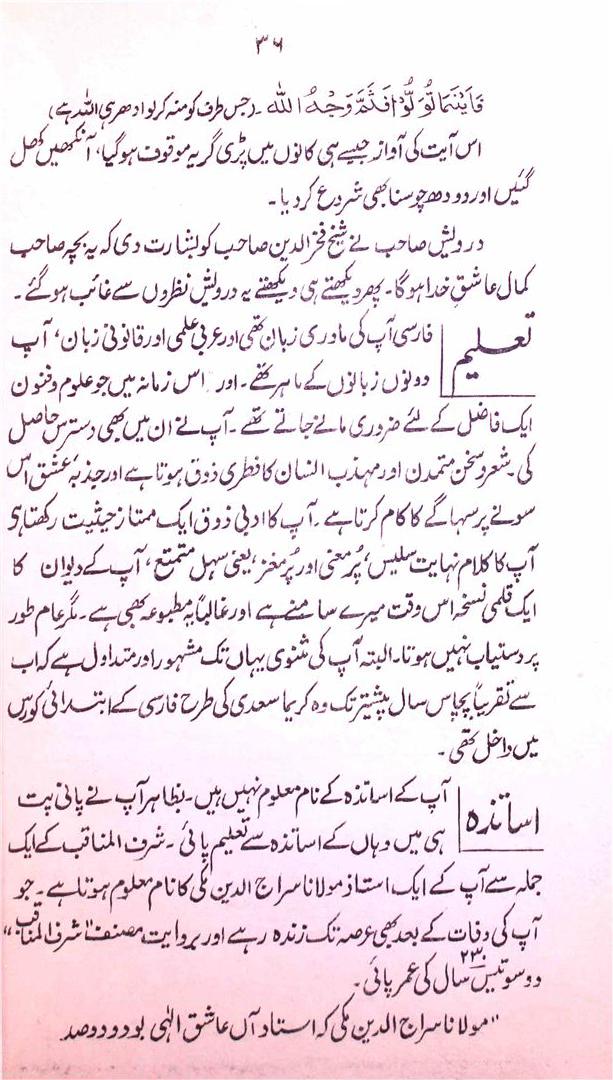 ۳۶
فَاَیْنَمَا تُوَلُّوْا فَثَمَّ وَجْہُ اللہ ۔ (جس طرف کو منہ کر لو ادھر ہی اللہ ہے)
اس آیت کی آواز جیسے ہی کانوں میں پڑی گریہ موقوف ہوگیا، آنکھیں کھل
گئیں اور دودھ چوسنا بھی شروع کر دیا۔
درویش صاحب نے شیخ فخرالدین صاحب کو بشارت دی کہ یہ بچہ صاحب
کمال عاشق خدا ہوگا۔ پھر دیکھتے ہی دیکھتے یہ درویش نظروں سے غائب ہو گئے۔
تعلیم
فارسی آپ کی مادری زبان تھی اور عربی علمی اور قانونی زبان، آپ
دونوں زبانوں کے ماہر تھے۔ اور اس زمانہ میں جو علوم و فنون
ایک فاضل کے لئے ضروری مانے جاتے تھے۔ آپ نے ان میں بھی دسترس حاصل
کی۔ شعر و سخن متمدن اور مہذب انسان کا فطری ذوق ہوتا ہے اور جذبۂ عشق اس
سونے پر سہاگے کا کام کرتا ہے۔ آپ کا ادبی ذوق ایک ممتاز حیثیت رکھتا ہی
آپ کا کلام نہایت سلیس، پُر معنی اور پُر مغز، یعنی سہل متمتع، آپ کے دیوان کا
ایک قلمی نسخہ اس وقت میرے سامنے ہے اور غالباً یہ مطبوعہ بھی ہے۔ مگر عام طور
پر دستیاب نہیں ہوتا۔ البتہ آپ کی مثنوی یہاں تک مشہور اور متداول ہے کہ اب
سے تقریباً پچاس سال پیشتر تک وہ کریما سعدی کی طرح فارسی کے ابتدائی کورس
میں داخل تھی۔
اساتذہ
آپ کے اساتذہ کے نام معلوم نہیں ہیں۔ بظاہر آپ نے پانی پت
ہی میں وہاں کے اساتذہ سے تعلیم پائی۔ شرف المناقب کے ایک
جملہ سے آپ کے ایک استاذ مولانا سراج الدین مکی کا نام معلوم ہوتا ہے۔ جو
آپ کی وفات کے بعد بھی عرصہ تک زندہ رہے اور بروایت مصنف "شرف المناقب"
دو سو تیس ۲۳۰ سال کی عمر پائی۔
"مولانا سراج الدین مکی کہ استاد آں عاشق الٰہی بود دو صد